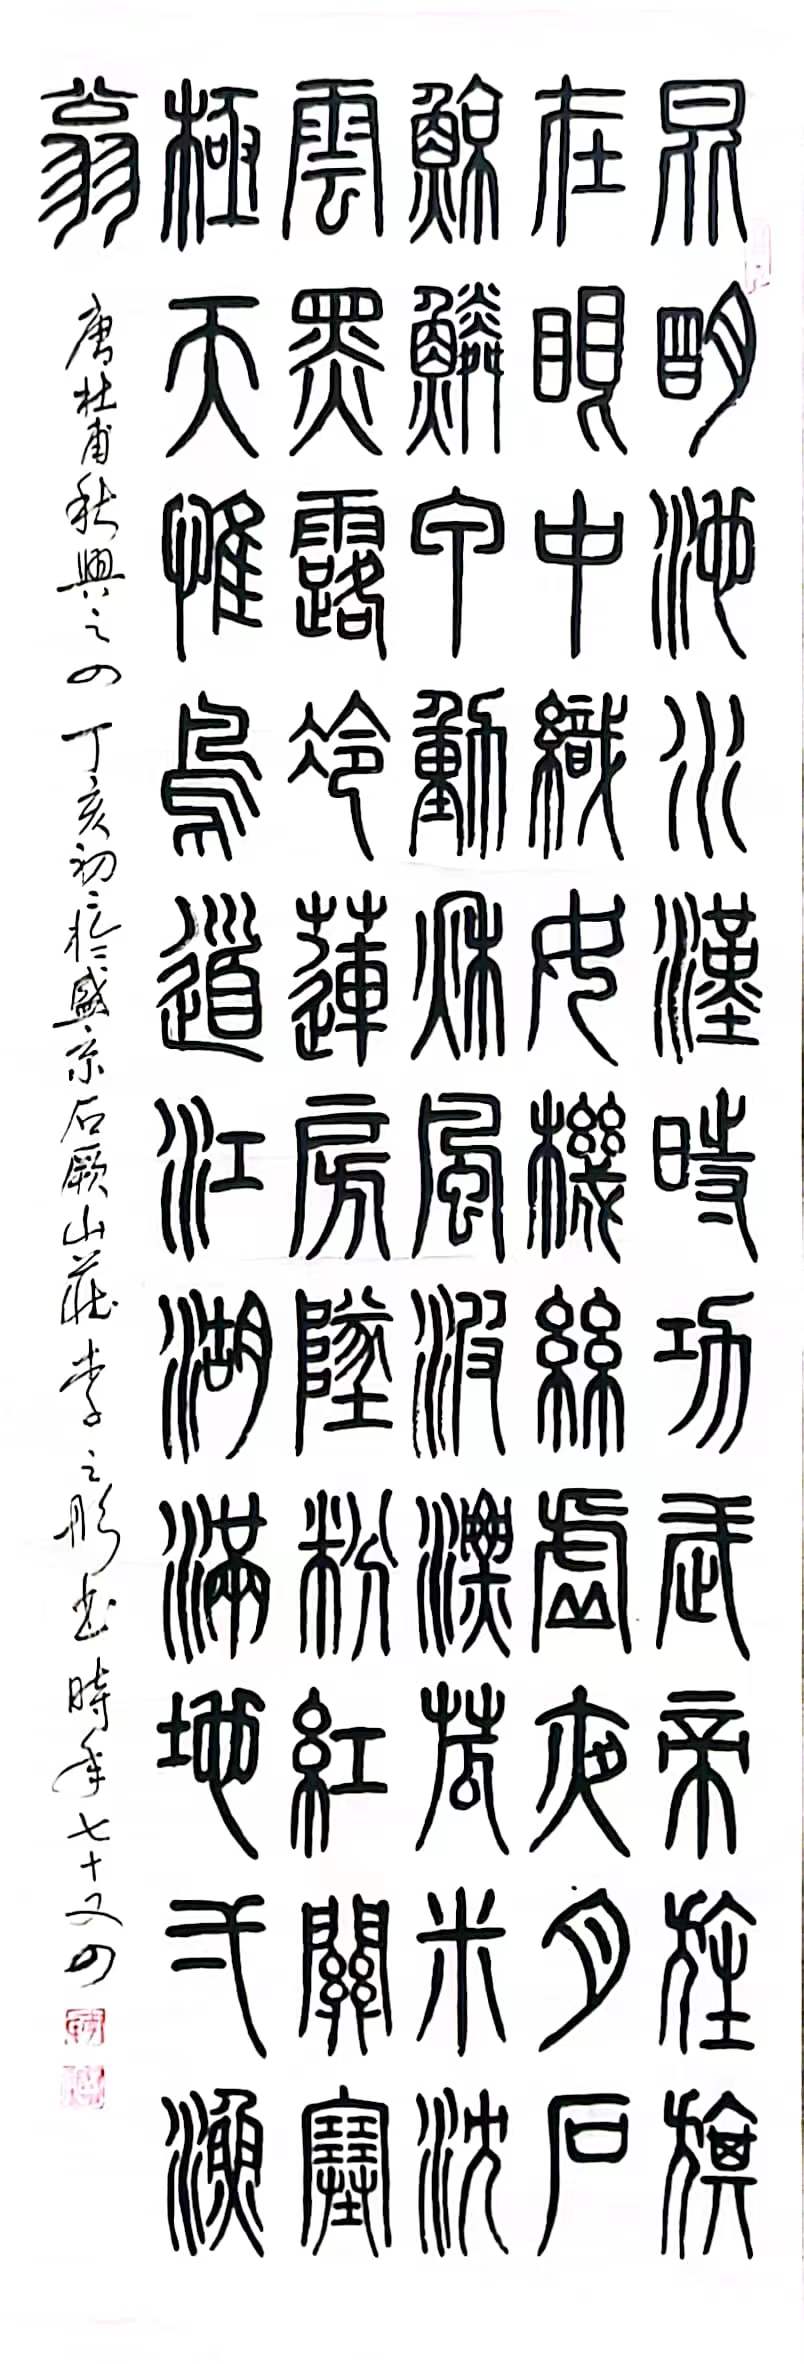 昆明池水漢時功武帝旌旗
在眼中織女機絲虛夜月石
鯨鱗甲動秋風波漂菰米沈
雲黑露冷蓮房墜粉紅關塞
極天惟鳥道江湖滿地弌漁
翁
唐杜甫秋興之四丁亥初二於盛京石厥山莊李之彤書時年七十又四